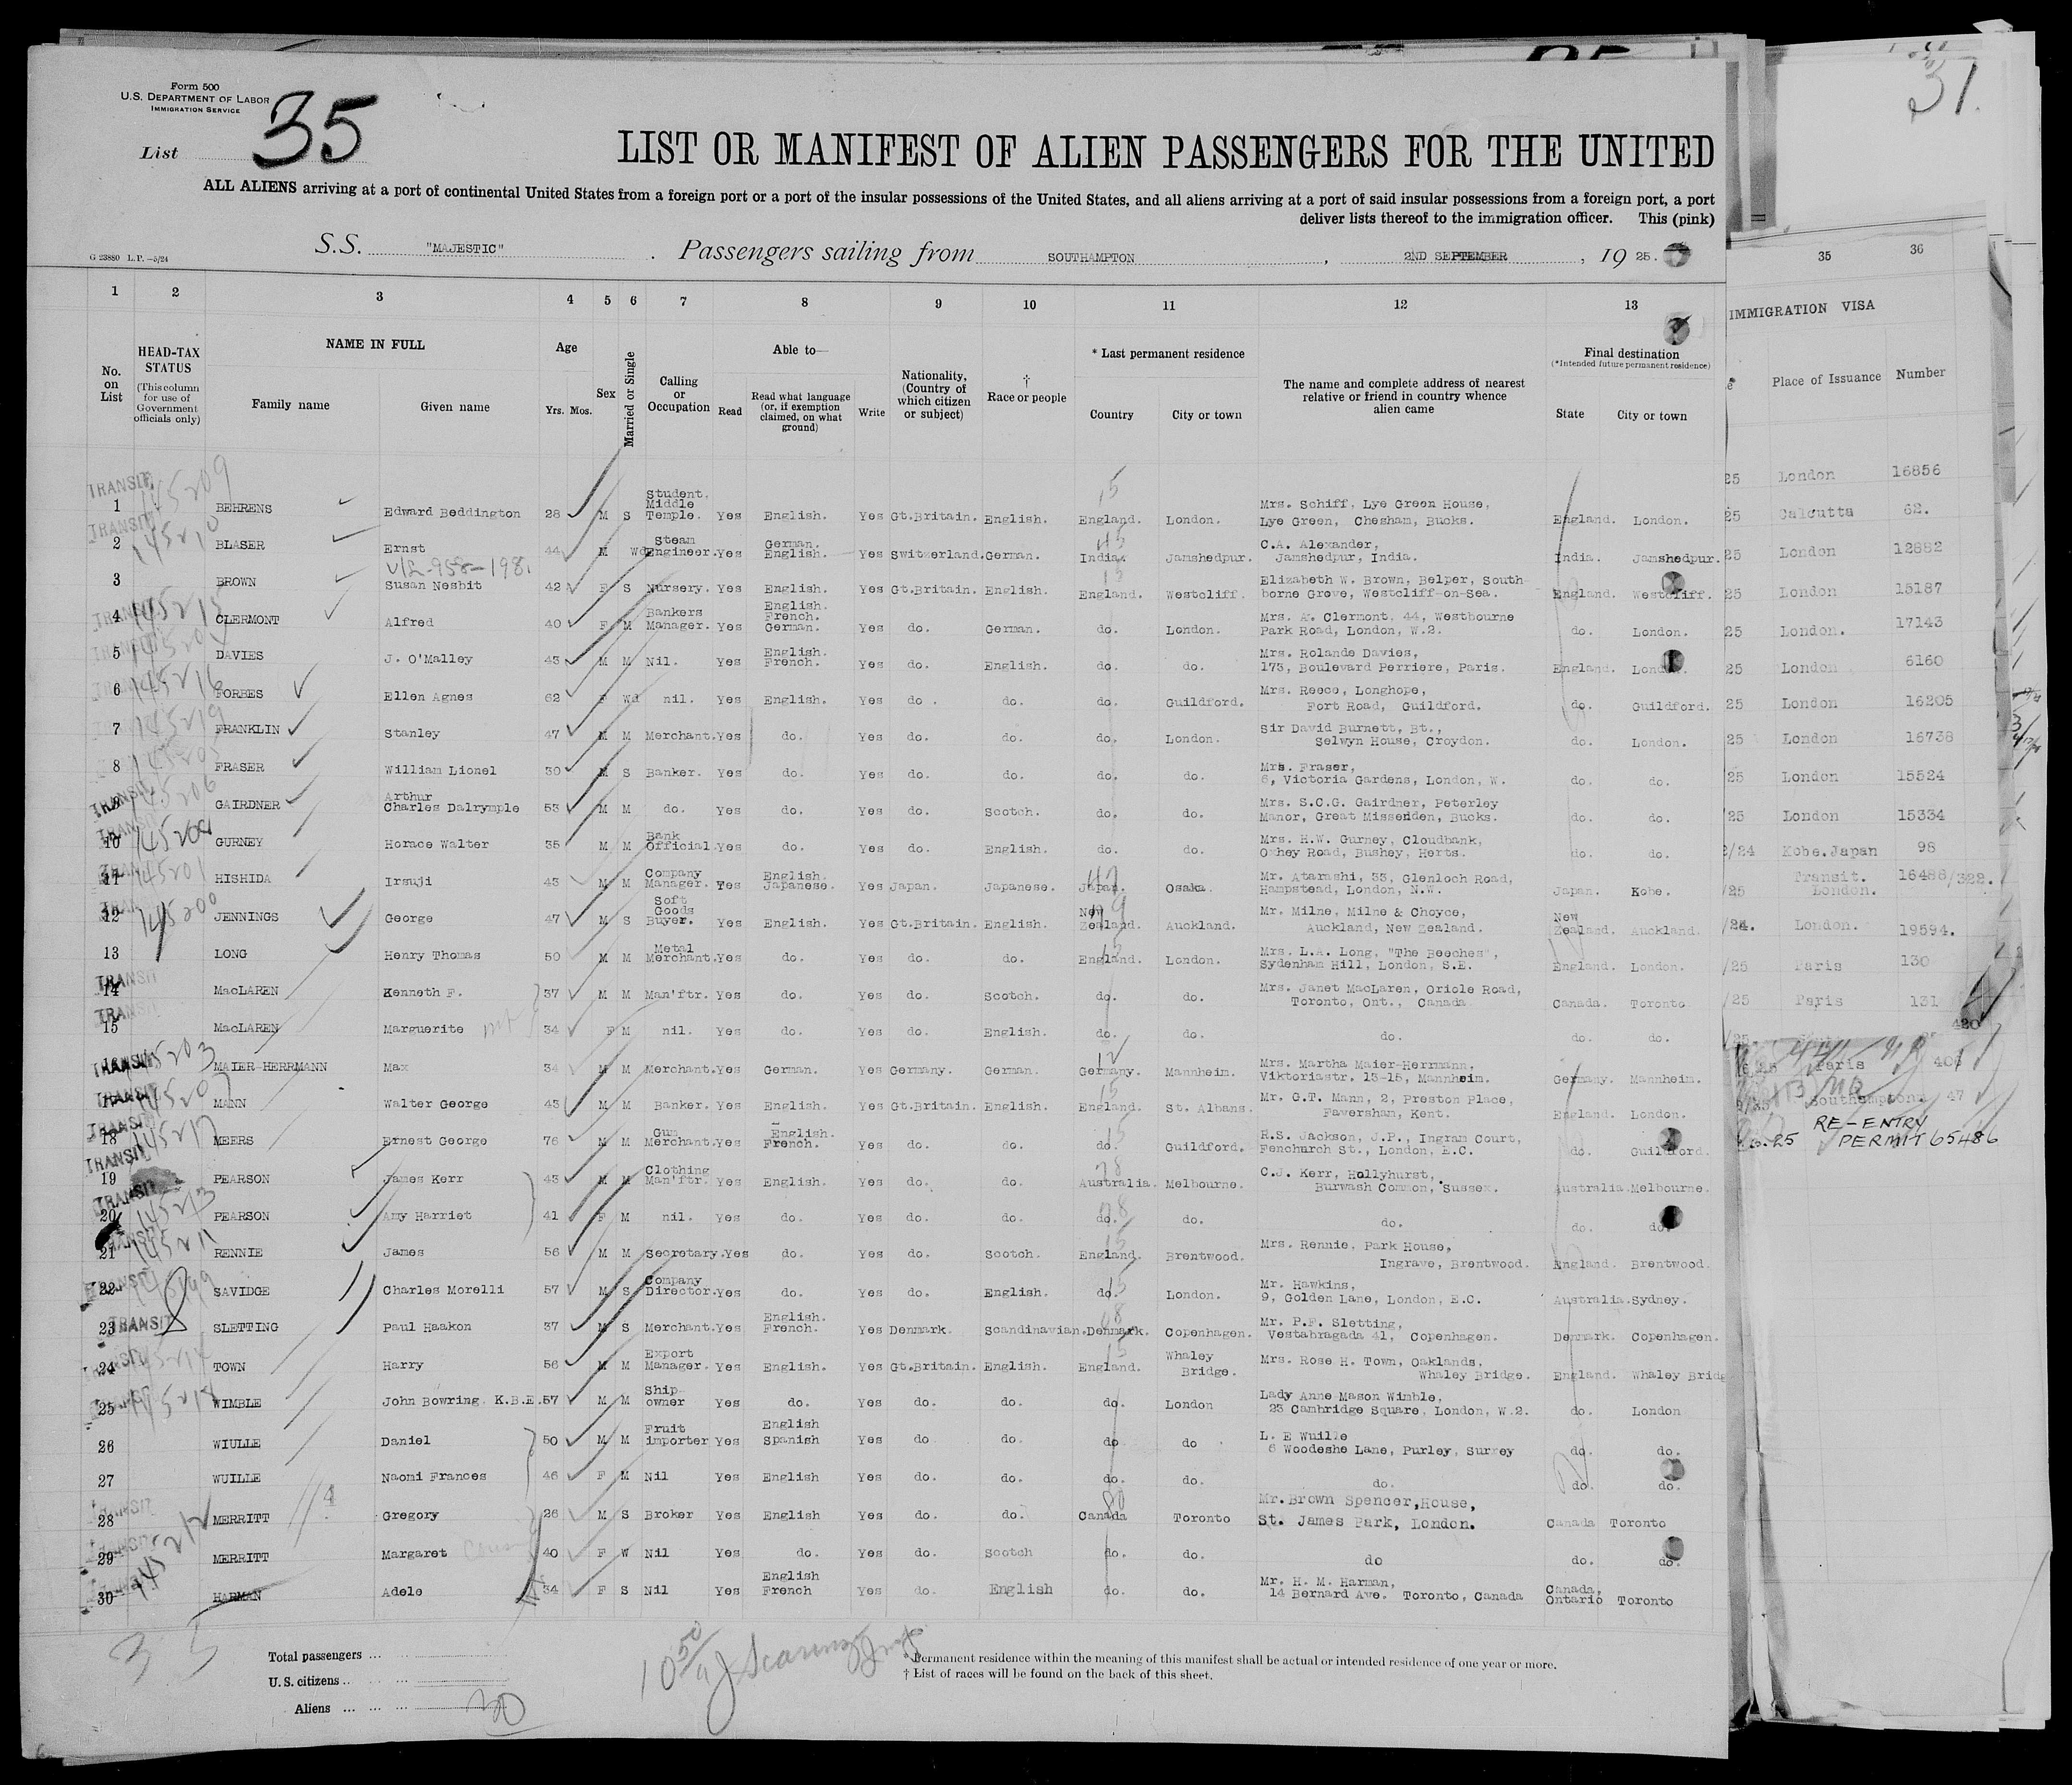 37.
Form 500
U.S. DEPARTMENT OF LABOR
IMMIGRATION SERVICE
List 35
LIST OR MANIFEST OF ALIEN PASSENGERS FOR THE UNITED
ALL ALIENS arriving at a port of continental United States from a foreign port or a port of the insular possessions of the United States, and all aliens arriving at a port of said insular possessions from a foreign port, a port
deliver lists thereof to the immigration officer. This (pink)
S.S. "MAJESTIC" . Passengers sailing from SOUTHAMPTON , 2ND SEPTEMBER , 19 25.
G 23880 L.P.—5/24
1 2 3 4 5 6 7 8 9 10 11 12 13 35 36
No. on List
HEAD-TAX STATUS (This column for use of Government officials only)
NAME IN FULL
Family name Given name
Age Yrs. Mos.
Sex
Married or Single
Calling or Occupation
Able to—
Read Read what language (or, if exemption claimed, on what ground) Write
Nationality, (Country of which citizen or subject)
† Race or people
* Last permanent residence
Country City or town
The name and complete address of nearest relative or friend in country whence alien came
Final destination
(*Intended future permanent residence)
State City or town
IMMIGRATION VISA
Place of Issuance Number
TRANSIT 145209
1 BEHRENS Edward Beddington 28 M S Student, Middle Temple. Yes English. Yes Gt.Britain. English. England. London. Mrs. Schiff, Lye Green House, Lye Green, Chesham, Bucks. England. London.
2 BLASER Ernst 44 M Wd Steam Engineer. Yes German. English. Yes Switzerland. German. India. Jamshedpur. C.A. Alexander, Jamshedpur, India. India. Jamshedpur.
3 BROWN Susan Nesbit 42 F S Nursery. Yes English. Yes Gt.Britain. English. England. Westcliff. Elizabeth W. Brown, Belper, Southborne Grove, Westcliff-on-Sea. England. Westcliff.
4 CLERMONT Alfred 40 F M Bankers Manager. Yes English. French. German. Yes do. German. do. London. Mrs. A. Clermont. 44, Westbourne Park Road, London, W.2. do. London.
5 DAVIES J. O'Malley 43 M M Nil. Yes English. French. Yes do. English. do. do. Mrs. Rolande Davies, 173, Boulevard Perriere, Paris. England. London.
6 FORBES Ellen Agnes 62 F Wd nil. Yes English. Yes do. do. do. Guildford. Mrs. Reece, Longhope, Fort Road, Guildford. do. Guildford.
7 FRANKLIN Stanley 47 M M Merchant. Yes do. Yes do. do. do. London. Sir David Burnett, Bt., Selwyn House, Croydon. do. London.
8 FRASER William Lionel 30 M S Banker. Yes do. Yes do. do. do. do. Mrs. Fraser, 6, Victoria Gardens, London, W. do. do.
9 GAIRDNER Arthur Charles Dalrymple 53 M M do. Yes do. Yes do. Scotch. do. do. Mrs. S.C.G. Gairdner, Peterley Manor, Great Missenden, Bucks. do. do.
10 GURNEY Horace Walter 35 M M Bank Official. Yes do. Yes do. English. do. do. Mrs. H.W. Gurney, Cloudbank, Oxhey Road, Bushey, Herts. do. do.
11 HISHIDA Irsuji 43 M M Company Manager. Yes English. Japanese. Yes Japan. Japanese. Japan. Osaka. Mr. Atarashi, 33, Glenloch Road, Hampstead, London, N.W. Japan. Kobe.
12 JENNINGS George 47 M S Soft Goods Buyer. Yes English. Yes Gt.Britain. English. New Zealand. Auckland. Mr. Milne, Milne & Choyce, Auckland, New Zealand. New Zealand. Auckland.
13 LONG Henry Thomas 50 M M Metal Merchant. Yes do. Yes do. do. England. London. Mrs. L.A. Long, "The Beeches", Sydenham Hill, London, S.E. England. London.
14 MacLAREN Kenneth F. 37 M M Man'ftr. Yes do. Yes do. Scotch. do. do. Mrs. Janet MacLaren, Oriole Road, Toronto, Ont., Canada Canada. Toronto
15 MacLAREN Marguerite 34 F M nil. Yes do. Yes do. English. do. do. do. do. do.
16 MAIER-HERRMANN Max 34 M M Merchant. Yes German. Yes Germany. German. Germany. Mannheim. Mrs. Martha Maier-Herrmann, Viktoriastr. 13-15, Mannheim. Germany. Mannheim.
17 MANN Walter George 43 M M Banker. Yes English. Yes Gt.Britain. English. England. St. Albans. Mr. G.T. Mann, 2, Preston Place, Faversham, Kent. England. London.
18 MEERS Ernest George 76 M M Gum Merchant. Yes English. French. Yes do. do. do. Guildford. R.S. Jackson, J.P., Ingram Court, Fenchurch St., London, E.C. do. Guildford.
19 PEARSON James Kerr 43 M M Clothing Man'ftr. Yes English. Yes do. do. Australia. Melbourne. C.J. Kerr, Hollyhurst, Burwash Common, Sussex. Australia. Melbourne.
20 PEARSON Amy Harriet 41 F M nil. Yes do. Yes do. do. do. do. do. do. do.
21 RENNIE James 56 M M Secretary. Yes do. Yes do. Scotch. England. Brentwood. Mrs. Rennie, Park House, Ingrave, Brentwood. England. Brentwood.
22 SAVIDGE Charles Morelli 57 M S Company Director. Yes do. Yes do. English. do. London. Mr. Hawkins, 9, Golden Lane, London, E.C. Australia. Sydney.
23 SLETTING Paul Haakon 37 M S Merchant. Yes English. French. Yes Denmark. Scandinavian. Denmark. Copenhagen. Mr. P.F. Sletting, Vestabragada 41, Copenhagen. Denmark. Copenhagen.
24 TOWN Harry 56 M M Export Manager. Yes English. Yes Gt.Britain. English. England. Whaley Bridge. Mrs. Rose H. Town, Oaklands, Whaley Bridge. England. Whaley Bridg
25 WIMBLE John Bowring K.B.E. 57 M M Ship-owner Yes do. Yes do. do. do. London Lady Anne Mason Wimble, 23 Cambridge Square, London, W.2. do. London
26 WIULLE Daniel 50 M M Fruit importer Yes English Spanish Yes do. do. do do L. E Wuille 6 Woodeshe Lane, Purley, Surrey do. do.
27 WUILLE Naomi Frances 46 F M Nil Yes English Yes do. do. do. do. do. do. do.
28 MERRITT Gregory 26 M S Broker Yes English Yes do. do. Canada Toronto Mr. Brown Spencer, House, St. James Park, London. Canada Toronto
29 MERRITT Margaret 40 F W Nil Yes do. Yes do. Scotch do. do. do do. do.
30 HARMAN Adele 34 F S Nil Yes English French Yes do. English do. do. Mr. H. M. Harman, 14 Bernard Ave. Toronto, Canada Canada, Ontario Toronto
25 London 16856
25 Calcutta 62.
25 London 12882
25 London 15187
25 London. 17143
25 London 6160
25 London 16205
25 London 16738
25 London 15524
/25 London 15334
2/24 Kobe.Japan 98
/25 Transit. London. 16486/322.
/24. London. 19594.
/25 Paris 130
/25 Paris 131
Paris 406
Southampton 47
25 RE-ENTRY
PERMIT 65486
35
Total passengers ...
U.S. citizens ...
Aliens ... 30
* Permanent residence within the meaning of this manifest shall be actual or intended residence of one year or more.
† List of races will be found on the back of this sheet.